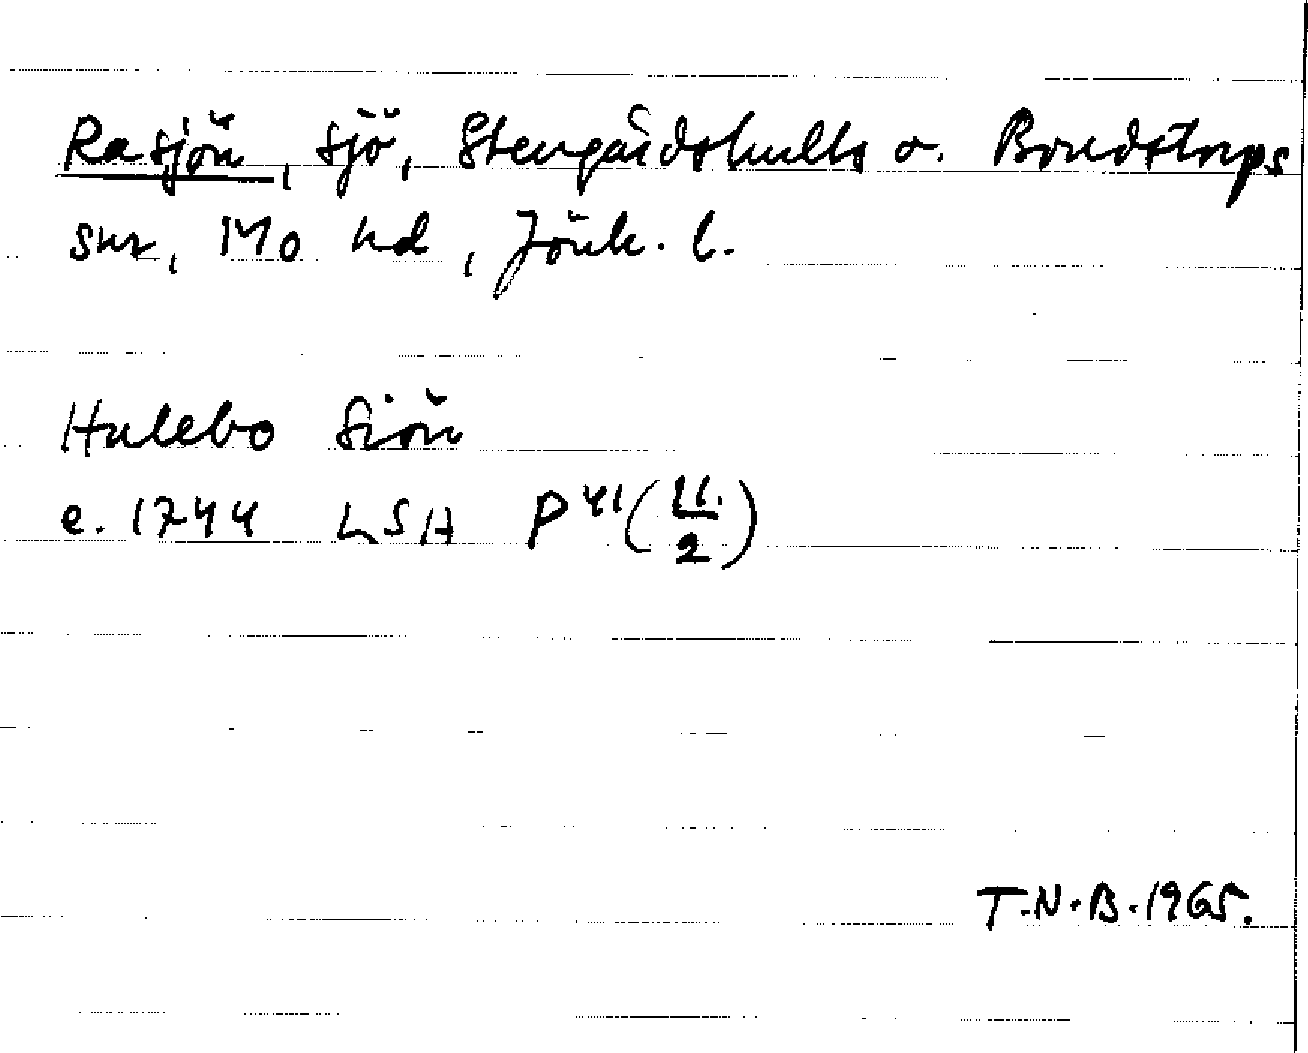 Rasjön, sjö, Stengårdshults o. Bondstorps
snr, Mo hd, Jönk. l.
Hulebo Siön
e. 1744 LSA P 41 (11./2)
T.N.B. 1965.